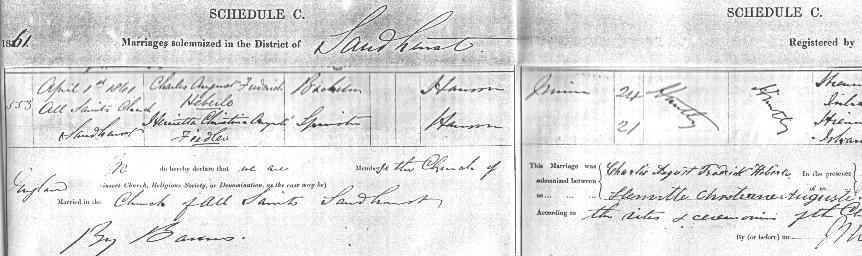 SCHEDULE C.
1861. Marriages solemnized in the District of Sandhurst.
April 1st 1861 Charles August Fredrich Bachelor Hanover
553 All Saints Church Heberle
Sandhurst Henrietta Christina Auguste Spinster Hanover
Fiedler
We do hereby declare that we are Members of the Church of
England (insert Church, Religious Society, or Denomination, as the case may be)
Married in the Church of All Saints Sandhurst
By Banns.
SCHEDULE C.
Registered by
Miner 24 Huntley Huntley
21
This Marriage was solemnized between us Charles August Fredrick Heberle In the presence of us
Henriette Christiane Auguste
According to the rites & ceremonies of the
By (or before) me